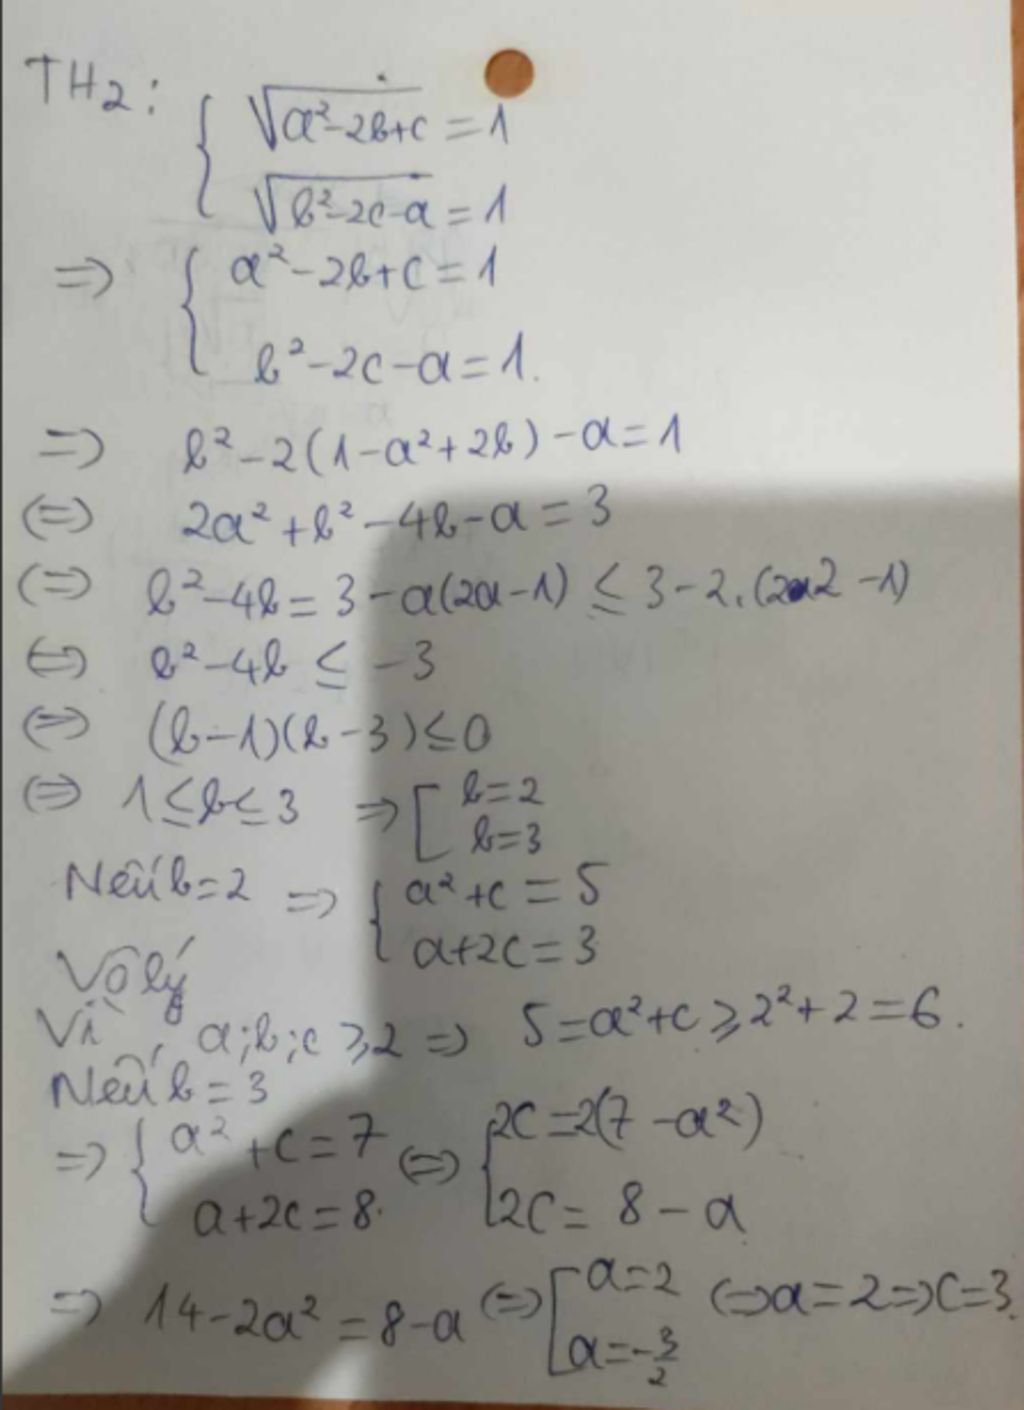 TH2: { √(a²-2b+c) = 1
√(b²-2c-a) = 1
=> { a²-2b+c = 1
b²-2c-a = 1.
=> b²-2(1-a²+2b)-a=1
(=) 2a²+b²-4b-a = 3
(=) b²-4b = 3-a(2a-1) ≤ 3-2.(2.2-1)
(=) b²-4b ≤ -3
(=) (b-1)(b-3) ≤ 0
(=) 1≤b≤3 => [ b=2
b=3
Nếu b=2 => { a²+c = 5
a+2c = 3
Vô lý
Vì a;b;c ≥2 => 5=a²+c ≥ 2²+2=6.
Nếu b=3
=> { a²+c=7 (=) { 2c=2(7-a²)
a+2c=8. 2c= 8-a
=> 14-2a² = 8-a (=) [ a=2 (=) a=2 => c=3.
a=-3/2